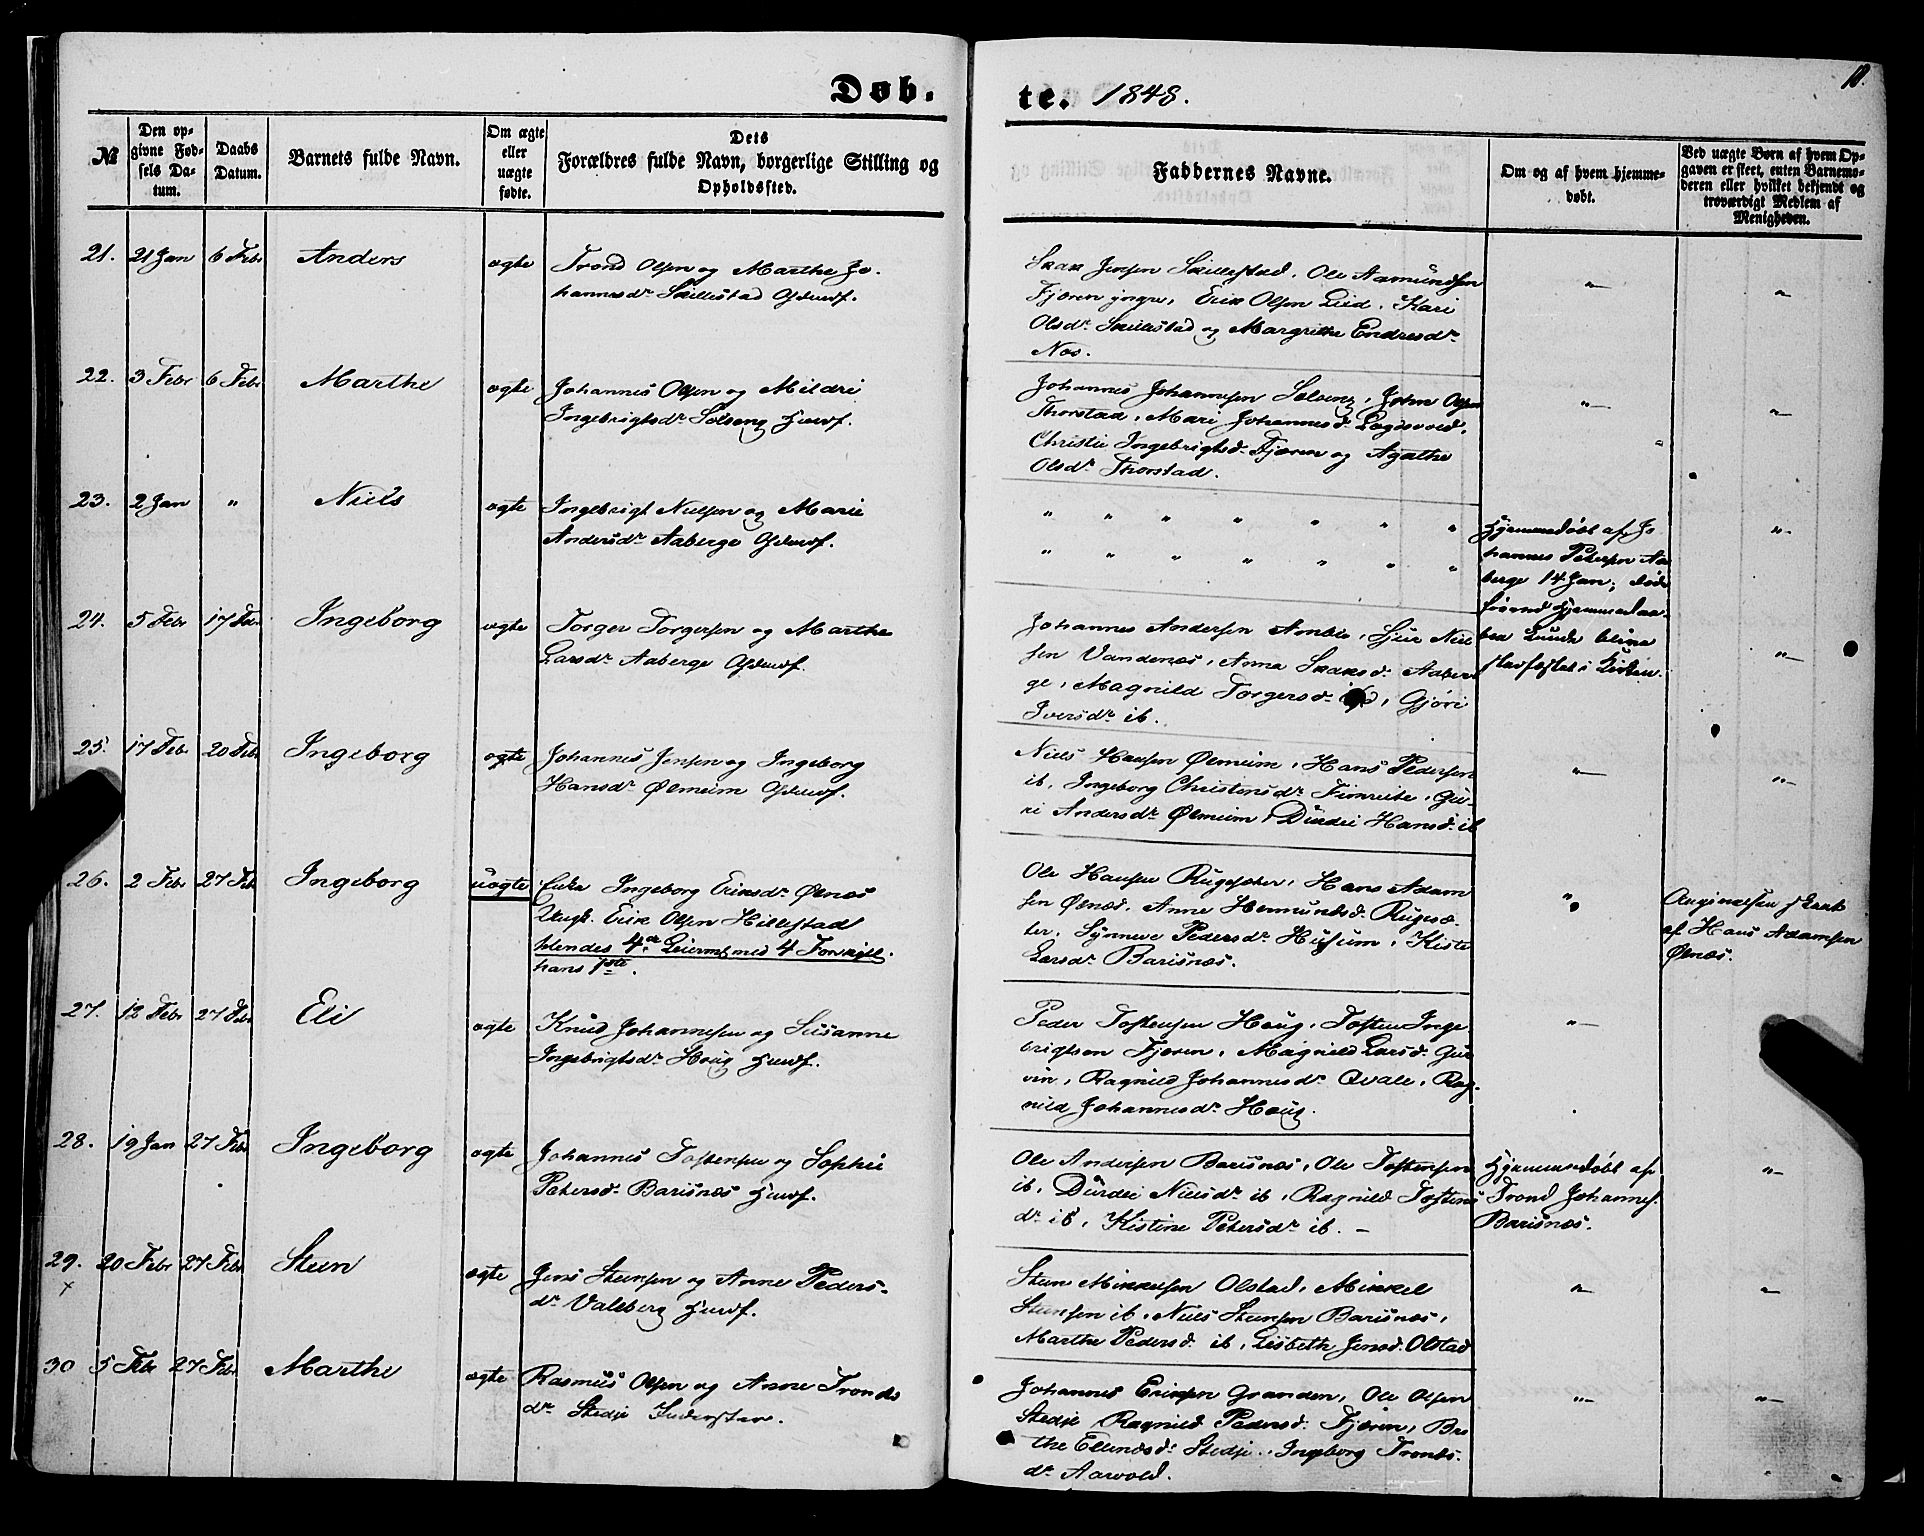 Døb-
te. 1848.
10.
No
Den op-
givne Fød-
sels Da-
tum.
Daabs
Datum.
Barnets fulde Navn.
Om ægte
eller
uægte
fødte.
Dets
Forældres fulde Navn, borgerlige Stilling og
Opholdssted.
Faddernes Navne.
Om og af hvem hjemme-
døbt.
Ved uægte Børn af hvem Op-
gaven er skeet, enten Barnemo-
deren eller hvilket bekjendt og
troværdigt Medlem af
Menigheden.
21. 21 Jan 6 Febr Anders ægte Trond Olsen og Marthe Jo-
hannesdr Skillestad Gdmdf.
Isak Jensen Skillestad, Ole Aamundsen
Fjæren yngre, Erik Olsen Lied, Kari
Olsdr Skillestad og Margrithe Endresdr
Nos.
22. 3 Febr 6 Febr Marthe ægte Johannes Olsen og Mildri
Ingebrigtsdr Solseng Huusf.
Johannes Johannesen Solseng, John Olsen
Thorstad, Mari Johannesd.
Christie Ingebrigtsd. Fjæren og Agathe
Olsdr Thorstad.
23. 2 Jan " Niels ægte Ingebrigt Nielsen og Marie
Andersdr Aaberge Gdmdf.
" " " " " " "
" " " " " " "
Hjemmedøbt af Jo
hannes Petersen Aa
berge 14 Jan; døde
førend Hjemmedaa-
ben kunde blive
stadfæstet i Kirken.
24. 5 Febr 17 Febr Ingeborg ægte Torger Torgersen og Marthe
Larsdr Aaberge Gdmdf.
Johannes Andersen Amble, Niel
sen Vandenæs, Anna Isaksd. Aaber
ge, Magnild Torgersd ib, Gjøri
Iversdr ib.
25. 17 Febr 20 Febr Ingeborg ægte Johannes Jensen og Ingeborg
Hansdr Ølmeim Gdmdf.
Niels Hansen Ølmeim, Hans Pedersen
ib, Ingeborg Christensdr Fimreite, Gu-
ri Andersdr Ølmeim, Durdei Hansd. ib
26. 2 Febr 27 Febr Ingeborg uægte Enke Ingeborg Eriksdr Ølnæs
Ungk. Erik Olsen Hillestad
hendes 4de Leierm. med 4 Forskjell.
hans 1ste.
Ole Hansen Rugesæter, Hans Adam
sen Ølnæs, Anne Hermundsd. Rugesæ-
ter, Synneve Pedersdr Husum, Kiste
Larsdr Barisnæs.
Angivelsen skeet
af Hans Adamsen
Ølnæs.
27. 12 Febr 27 Febr Eli ægte Knud Johannesen og Susanne
Ingebrigtsdr Houg Huusf.
Peder Tostensen Houg, Tosten Inge
brigtsen Fjæren, Magnild Larsd. Gur
vin, Ragnild Johannesdr Qvale, Rag-
nild Johannesdr Houg.
28. 19 Jan 27 Febr Ingeborg ægte Johannes Tostensen og Sophie
Petersd. Barisnæs Huusf.
Ole Andersen Barisnæs, Ole Tostensen
ib, Durdei Nielsdr ib, Ragnild Tostens
dr ib, Kistine Petersdr ib. -
Hjemmedøbt af
Trond Johannes.
Barisnæs.
29. 20 Febr 27 Febr Steen ægte Jens Steensen og Anne Peders-
dr Valeberg Huusf.
x
Steen Mikkelsen Olstad, Mikkel
Steensen ib, Niels Steensen Barisnæs,
Marthe Pedersd. ib, Lisbeth Jensd. Olstad
30 5 Febr 27 Febr Marthe ægte Rasmus Olsen og Anne Tronds
dr Stedje Inderstar.
Johannes Eriksen Granden, Ole Olsen
Stedje, Ragnild Pedersd. Fjæren, Bri
the Ellendsdr Stedje, Ingeborg Tronds.
dr Aarvold.